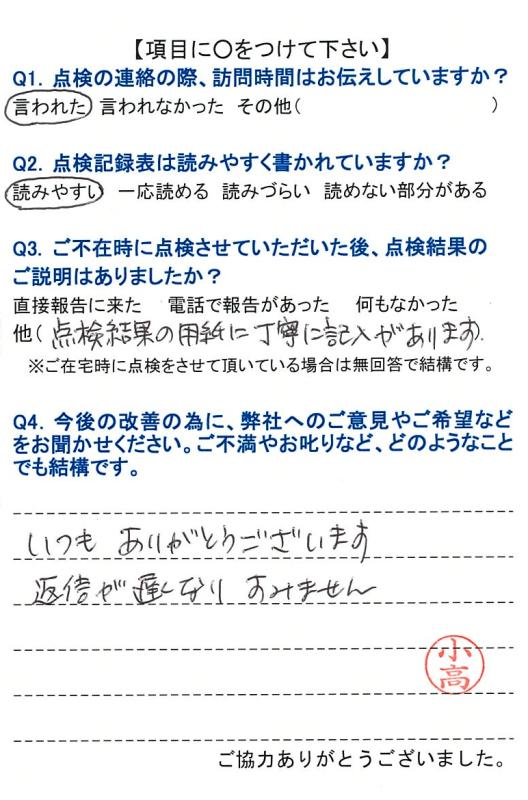 【項目に○をつけて下さい】
Q1. 点検の連絡の際、訪問時間はお伝えしていますか？
言われた 言われなかった その他( )
Q2. 点検記録表は読みやすく書かれていますか？
読みやすい 一応読める 読みづらい 読めない部分がある
Q3. ご不在時に点検させていただいた後、点検結果の
ご説明はありましたか？
直接報告に来た 電話で報告があった 何もなかった
他( 点検結果の用紙に丁寧に記入があります)
※ご在宅時に点検をさせて頂いている場合は無回答で結構です。
Q4. 今後の改善の為に、弊社へのご意見やご希望など
をお聞かせください。ご不満やお叱りなど、どのようなこと
でも結構です。
いつも ありがとうございます
返信が遅くなり すみません
小高
ご協力ありがとうございました。